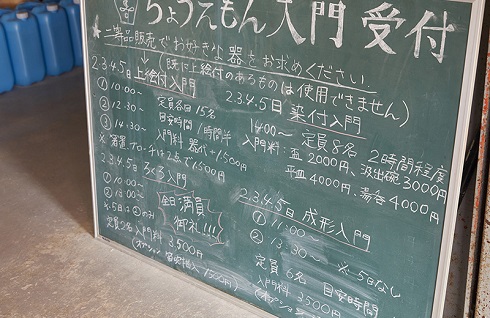 ちょうえもん入門 受付
★二等品販売でお好きな器をお求めください
(既に上絵付のあるものは使用できません)
2.3.4.5日 上絵付入門
① 10:00~
② 12:30~
③ 14:30~
定員各回15名
目安時間 1時間半
入門料 器代+1,500円
※箸置、ブローチは2点で1,500円
2.3.4.5日 染付入門
14:00~ 定員8名 2時間程度
入門料:盃 2000円、汲出碗 3000円
平皿 4000円、湯呑 4000円
2.3.4.5日 ろくろ入門
① 10:00~
② 13:00~
※5日は①のみ
定員2名 入門料 3,500円
全日満員
御礼!!!
2.3.4.5日 成形入門
① 11:00~
② 13:30~ ※5日なし
定員6名 目安時間
入門料 3500円